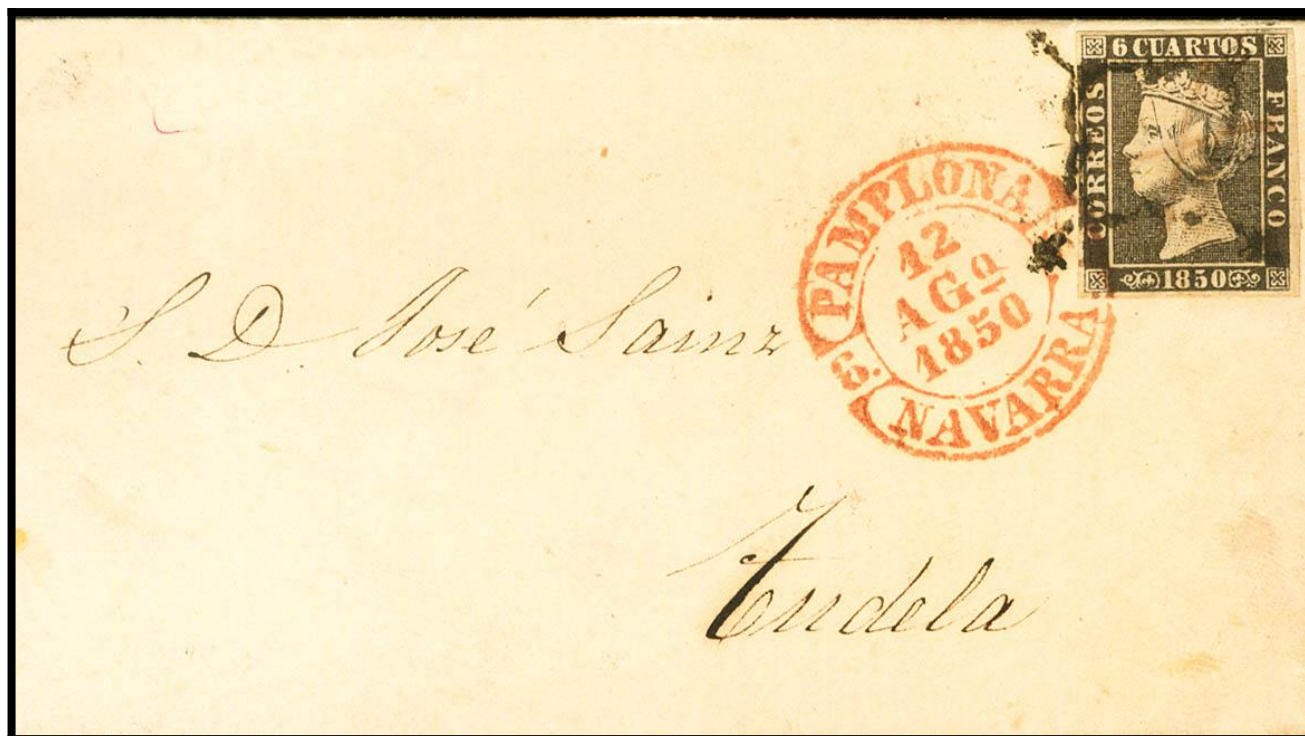 6 CUARTOS
CORREOS
FRANCO
1850
PAMPLONA
12
AGº
1850
5.
NAVARRA
S. D. José Sainz
Tudela